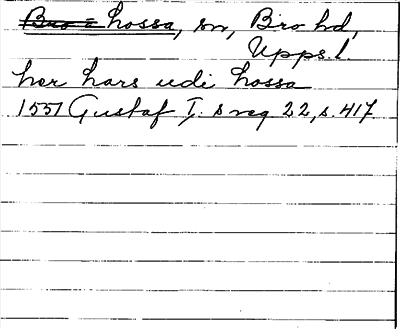 ~~Bro =~~ Lossa, sn, Bro hd,
Uppsl.
her Lars udi Lossa
1557 Gustaf I:s reg 22, s. 417